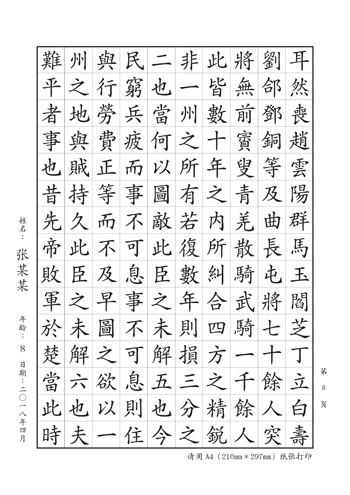 耳然喪趙雲陽群馬玉閻芝丁立白壽
劉郃鄧銅等及曲長屯將七十餘人突
將無前賨叟青羌散騎武騎一千餘人
此皆數十年之內所糾合四方之精銳
非一州之所有若復數年則損三分之
二也當何以圖敵此臣之未解五也今
民窮兵疲而事不可息事不可息則住
與行勞費正等而不及早圖之欲以一
州之地與賊持久此臣之未解六也夫
難平者事也昔先帝敗軍於楚當此時
姓名：张某某 年龄：8 日期：二〇一八年四月
第8页
请用A4（210mm×297mm）纸张打印